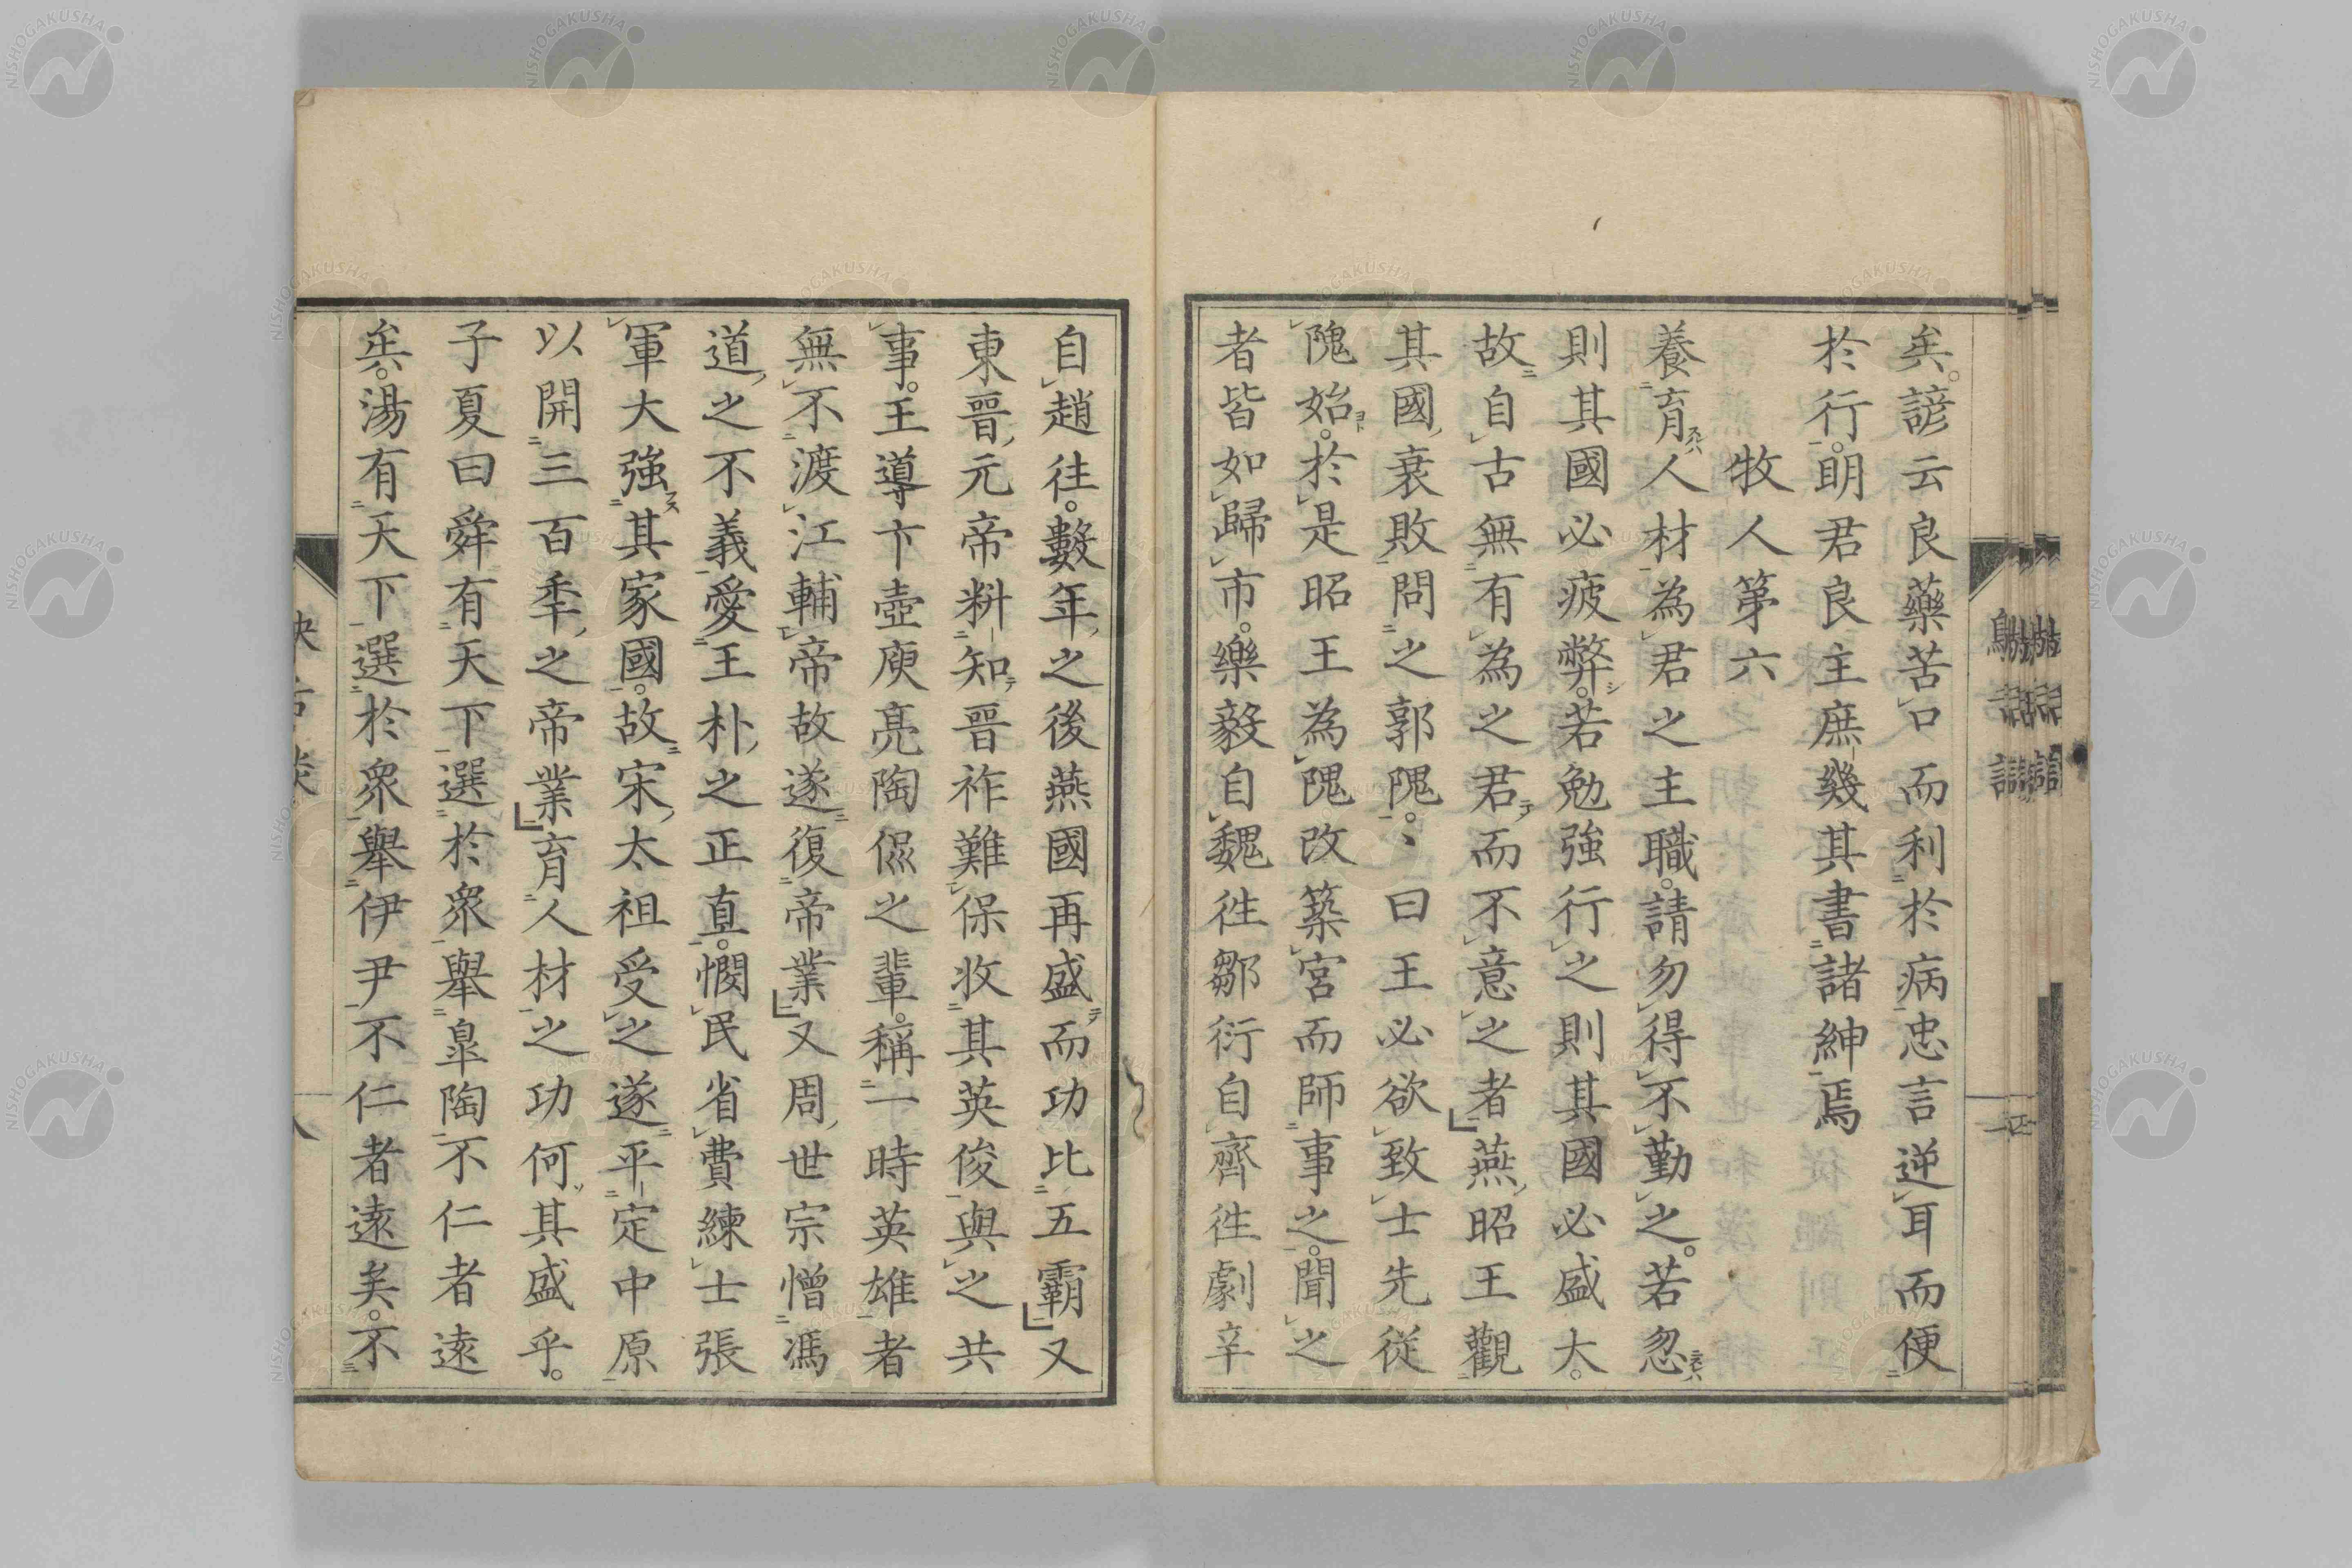 矣。諺云良藥苦口而利於病忠言逆耳而便
於行。明君良主庶幾其書諸紳焉
牧人第六
養育人材為君之主職。請勿得不勤之。若忽
則其國必疲弊。若勉強行之則其國必盛大。
故自古無有為之君而不意之者燕昭王觀
其國衰敗問之郭隗。、曰王必欲致士先従
隗始。於是昭王為隗改築宮而師事之。聞之
者皆如歸市。樂毅自魏徃鄒衍自齊徃劇辛
自趙往。數年之後燕國再盛而功比五霸又
東晉元帝料知晉祚難保收其英俊與之共
事。王導卞壺庾亮陶侃之輩。稱一時英雄者
無不渡江輔帝故遂復帝業又周世宗憎馮
道之不義愛王朴之正直。憫民省費練士張
軍大強其家國。故宋太祖受之遂平定中原
以開三百秊之帝業育人材之功何其盛乎。
子夏曰舜有天下選於衆舉皐陶不仁者遠
矣。湯有天下選於衆舉伊尹不仁者遠矣。不